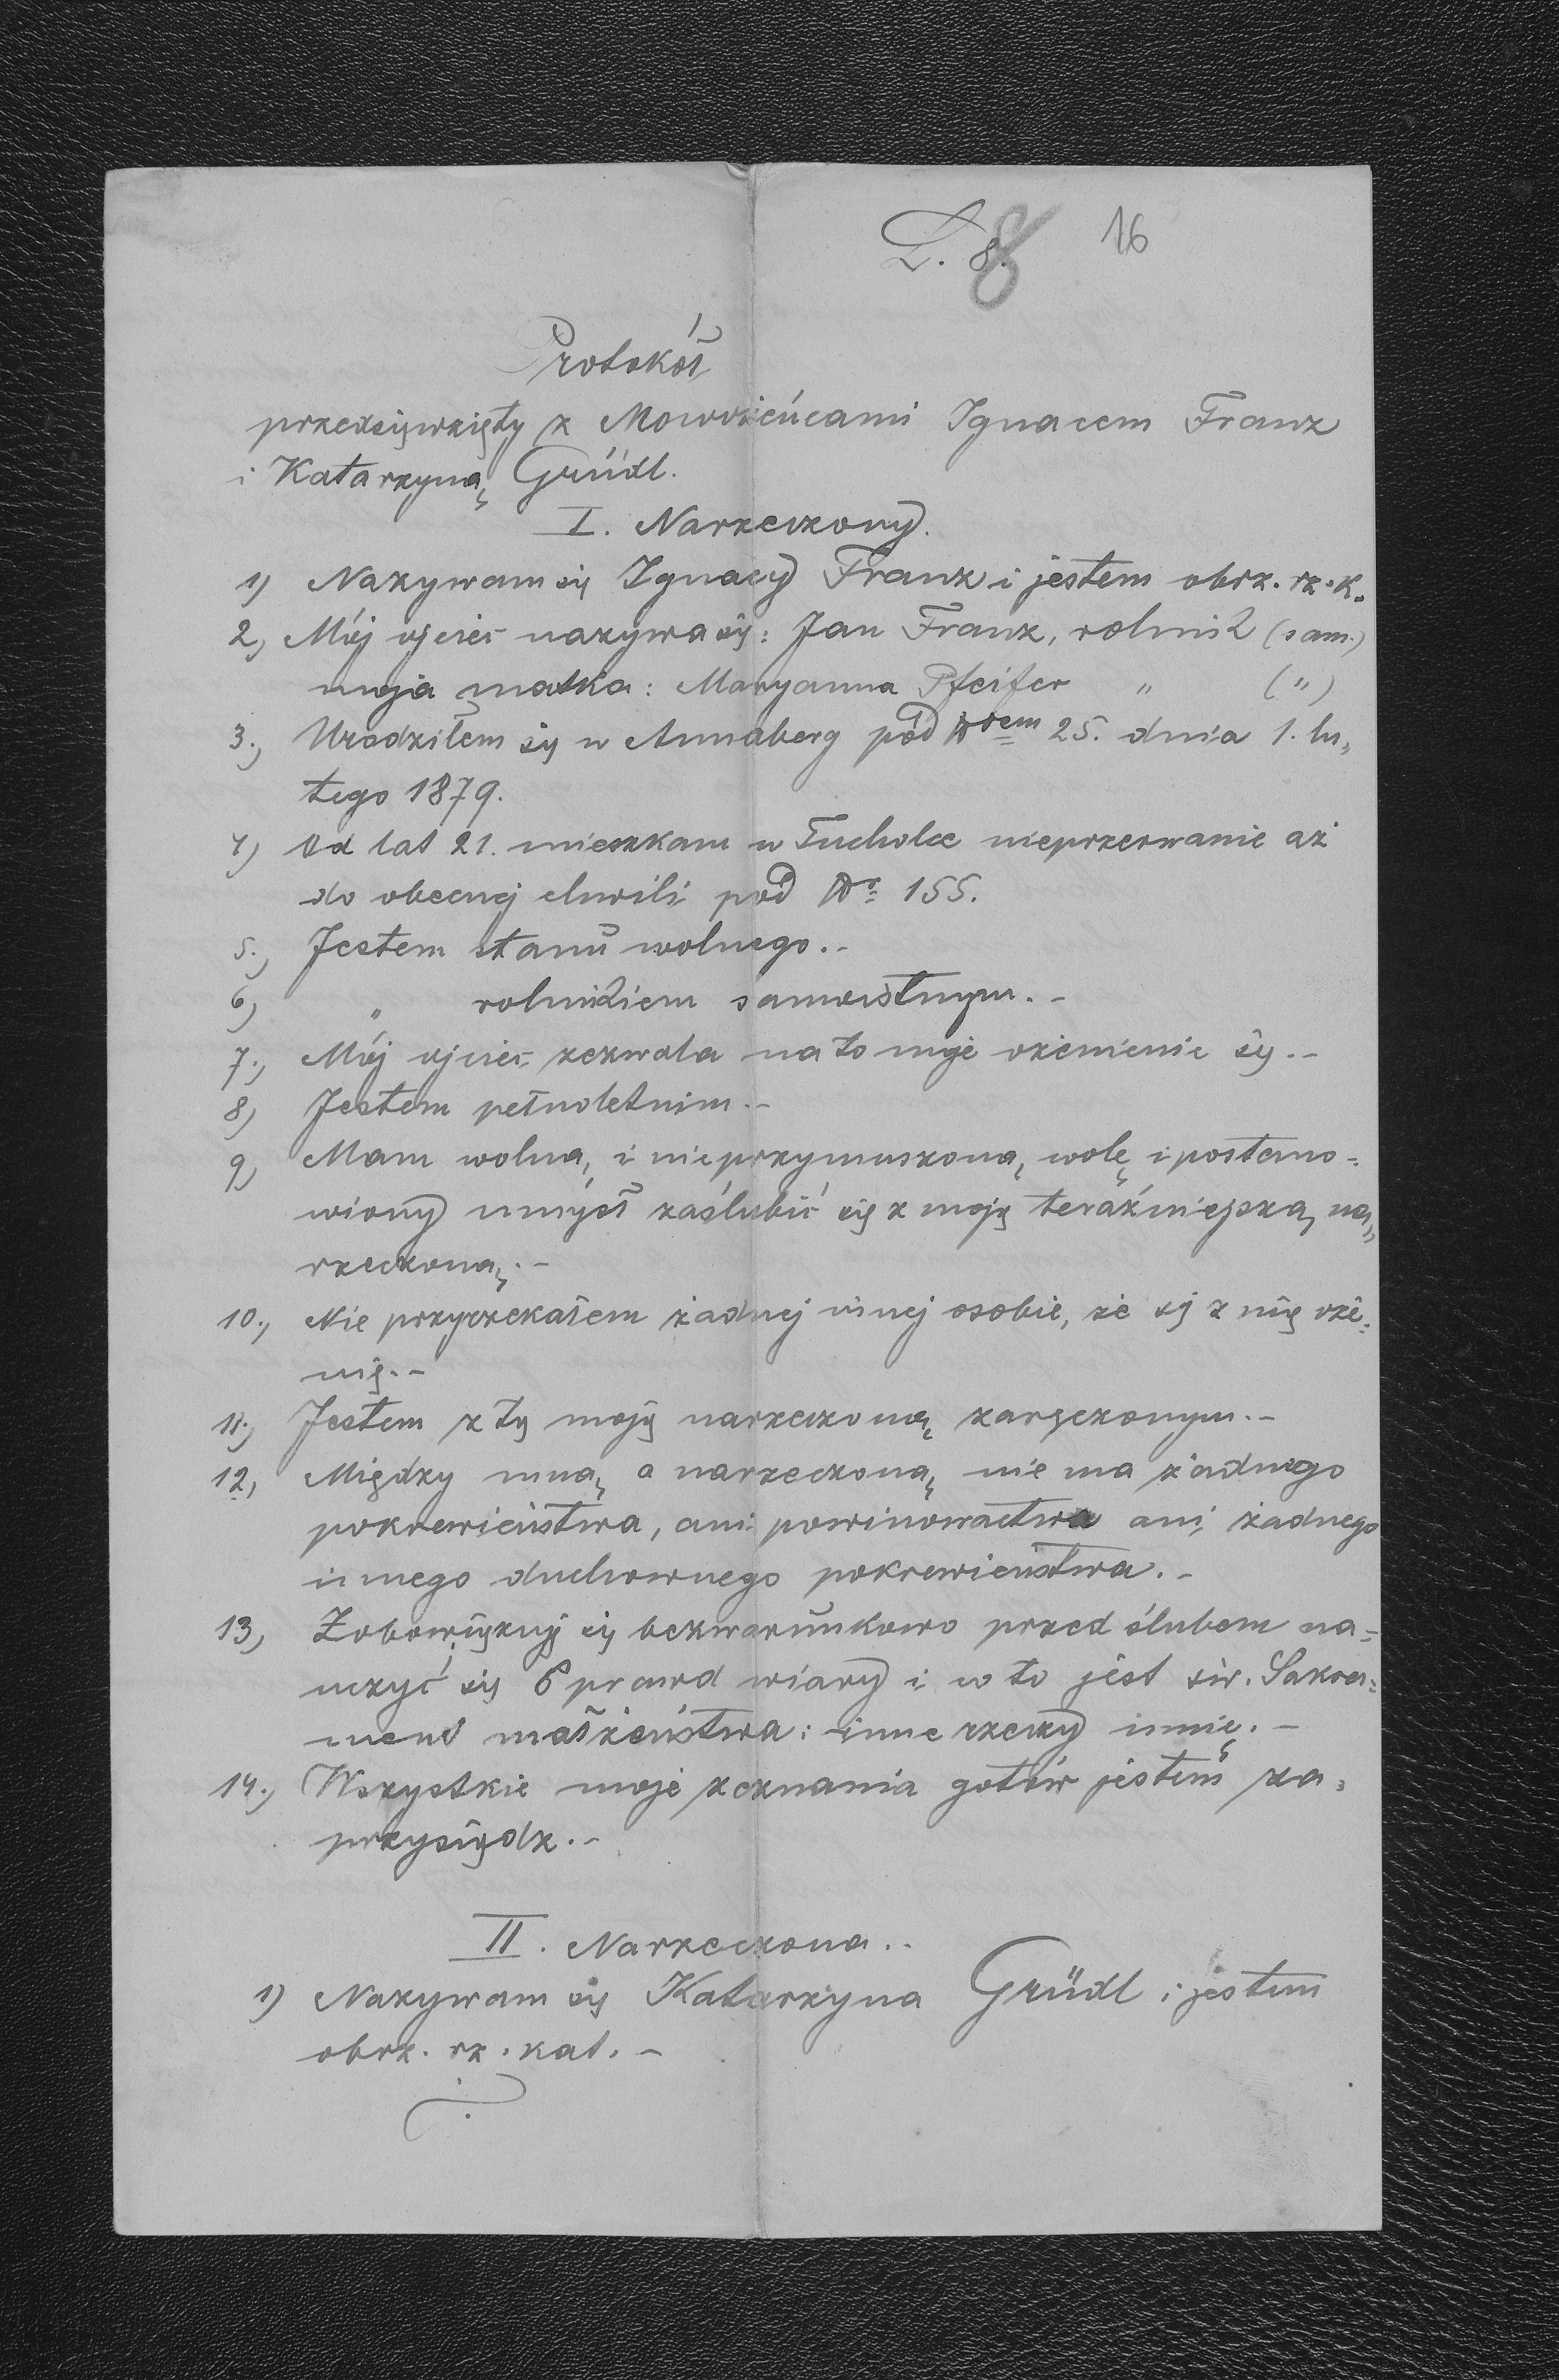 L. 8. 8 16
Protokół
przedsięwzięty z Mowożeńcami Ignacem Franz
i Katarzyną Gründl.
I. Narzeczony.
1) Nazywam się Ignacy Franz i jestem obrz. rz. k.
2) Mój ojciec nazywa się: Jan Franz, rolnik (sam.)
moja matka: Maryanna Pfeifer " (")
3.) Urodziłem się w Annaberg pod Nrem 25. dnia 1. lu„
tego 1879.
4) Od lat 21. mieszkam w Tucholce nieprzerwanie aż
do obecnej chwili pod Nr 155.
5.) Jestem stanu wolnego.-
6) " rolnikiem samoistnym.-
7.) Mój ojciec zezwala na to moje ożenienie się.-
8) Jestem pełnoletnim.-
9) Mam wolną, i nieprzymuszoną wolę i postano-
wiony umysł zaślubić się z moją teraźniejszą na„
rzeczoną.-
10.) Nie przyrzekałem żadnej innej osobie, że się z nią oże-
nię.-
11.) Jestem z tą moją narzeczoną zaręczonym.-
12) Między mną a narzeczoną nie ma żadnego
pokrewieństwa, ani powinowactwa ani żadnego
innego duchownego pokrewieństwa.-
13) Zobowięzuję się bezwarunkowo przed ślubem na-
uczyć się 6 prawd wiary i co to jest św. Sakra-
ment małżeństwa: inne rzeczy umię.-
14.) Wszystkie moje zeznania gotów jestem za-
przysiędz.-
II. Narzeczona.-
1) Nazywam się Katarzyna Gründl i jestem
obrz. rz. kat.-